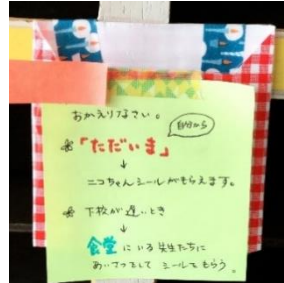 おかえりなさい。
自分から
「ただいま」
↓
ニコちゃんシールがもらえます。
下校が遅いとき
↓
食堂にいる先生たちに
あいさつをして シールをもらう。